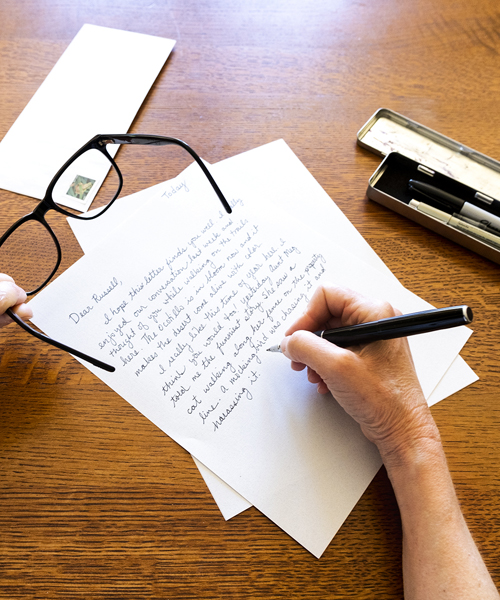 Today
Dear Russell,
I hope this letter finds you well. I really
enjoyed our conversation last week and
thought of you while walking on the trails
here. The ocotillo is in bloom now and it
makes the desert come alive with color.
I really like this time of year here. I
think you would too. Yesterday Aunt Meg
told me the funniest story. She saw a
cat walking along her fence on the property
line. A mocking bird was chasing it and
harassing it